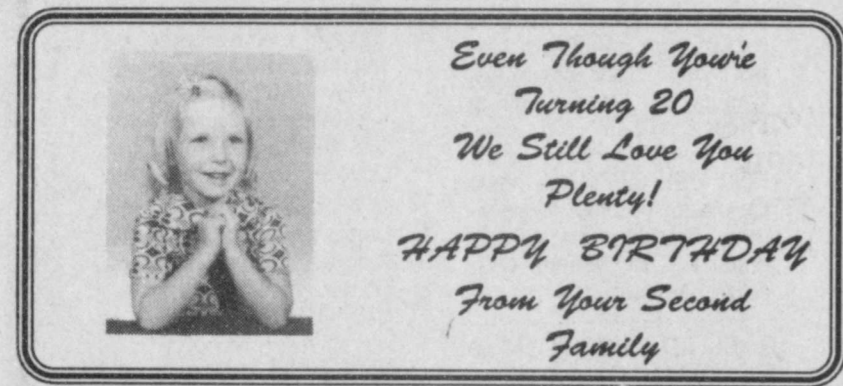 Even Though You're
Turning 20
We Still Love You
Plenty!
HAPPY BIRTHDAY
From Your Second
Family